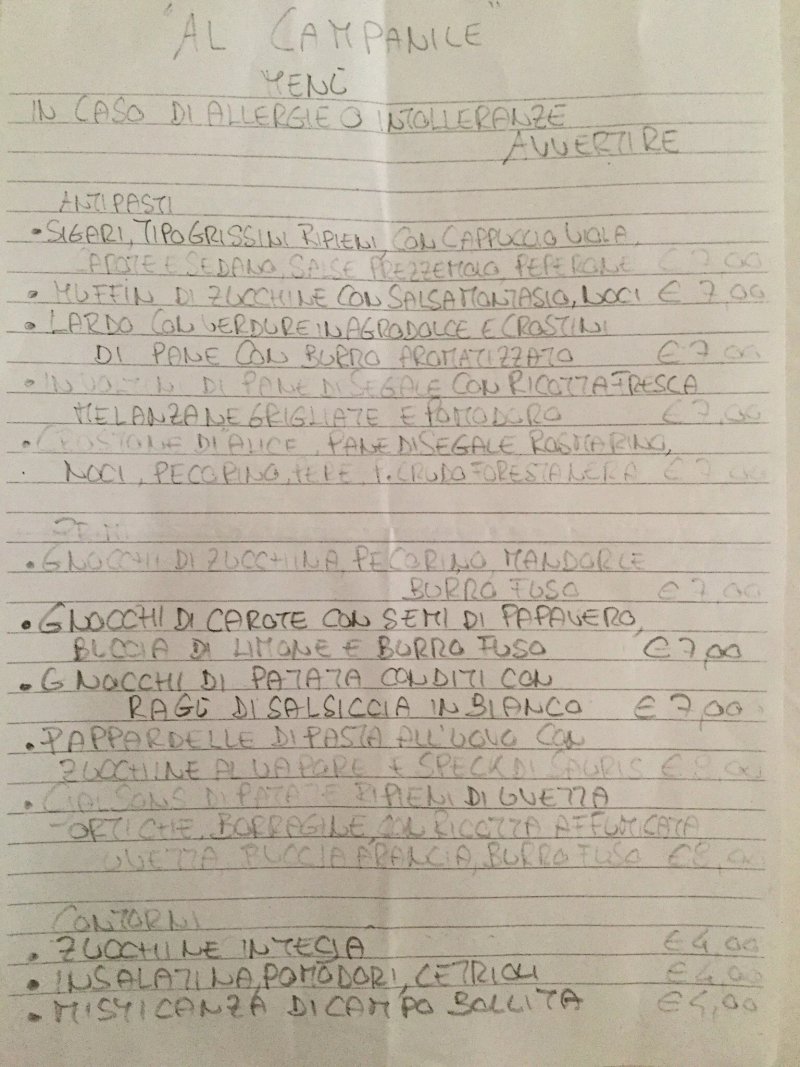 "AL CAMPANILE"
MENÙ
IN CASO DI ALLERGIE O INTOLLERANZE
AVVERTIRE
ANTIPASTI
• SIGARI, TIPO GRISSINI RIPIENI, CON CAPPUCCIO VIOLA,
CAROTE E SEDANO, SALSE PREZZEMOLO, PEPERONE € 7,00
• MUFFIN DI ZUCCHINE CON SALSA MONTASIO, NOCI € 7,00
• LARDO CON VERDURE IN AGRODOLCE E CROSTINI
DI PANE CON BURRO AROMATIZZATO € 7,00
• INVOLTINI DI PANE DI SEGALE CON RICOTTA FRESCA
MELANZANE GRIGLIATE E POMODORO € 7,00
• CROSTONE DI ALICE, PANE DI SEGALE ROSMARINO,
NOCI, PECORINO, PEPE, P. CRUDO FORESTANERA € 7,00
PRIMI
• GNOCCHI DI ZUCCHINA, PECORINO, MANDORLE
BURRO FUSO € 7,00
• GNOCCHI DI CAROTE CON SEMI DI PAPAVERO,
BUCCIA DI LIMONE E BURRO FUSO € 7,00
• GNOCCHI DI PATATA CONDITI CON
RAGÙ DI SALSICCIA IN BIANCO € 7,00
• PAPPARDELLE DI PASTA ALL'UOVO CON
ZUCCHINE AL VAPORE E SPECK DI SAURIS € 8,00
• CIALSONS DI PATATE RIPIENI DI UVETTA
ORTICHE, BORRAGINE, CON RICOTTA AFFUMICATA
UVETTA, BUCCIA ARANCIA, BURRO FUSO € 8,00
CONTORNI
• ZUCCHINE IN TECIA € 4,00
• INSALATINA, POMODORI, CETRIOLI € 4,00
• MISTICANZA DI CAMPO BOLLITA € 4,00